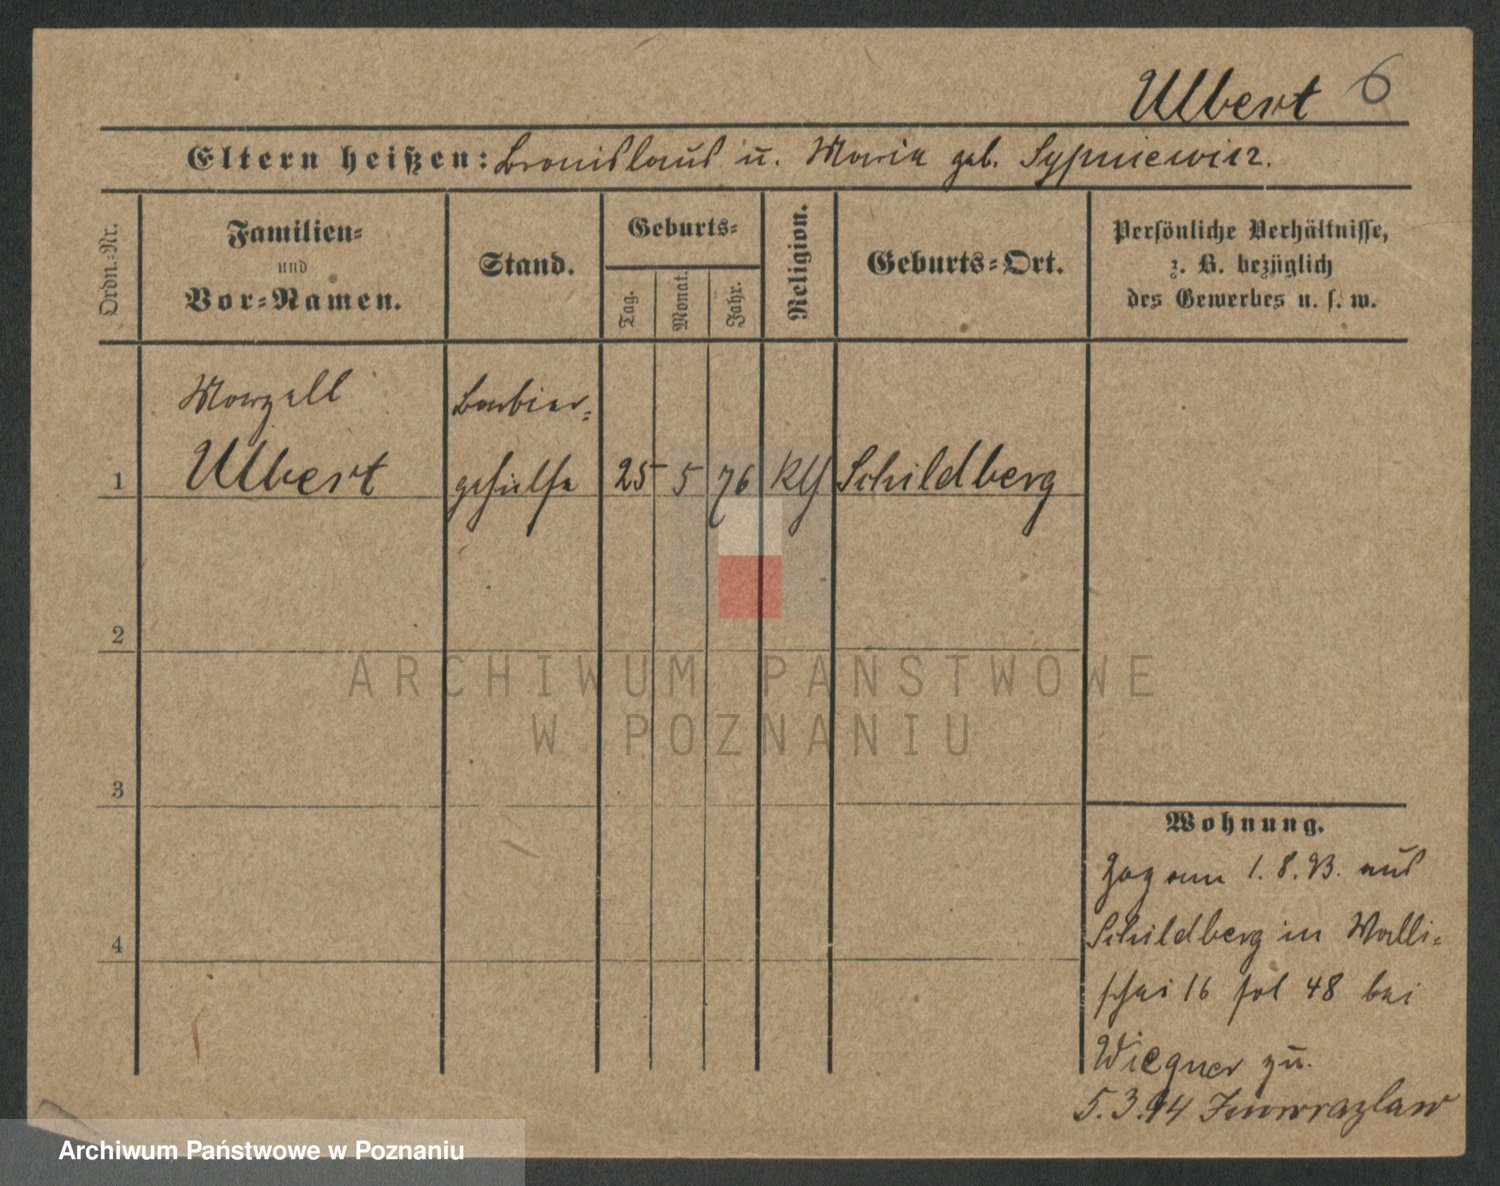 Ulbert 6
Eltern heißen: Bronislaus u. Maria geb. Sypniewicz.
Ordn.-Nr.
Familien-
und
Vor-Namen.
Stand.
Geburts-
Tag.
Monat.
Jahr.
Religion.
Geburts-Ort.
Persönliche Verhältnisse,
z. B. bezüglich
des Gewerbes u. s. w.
Marzell
Barbier-
1 Ulbert gehülfe 25 5 76 Kth Schildberg
2
3
4
Wohnung.
Zog am 1.8.93. aus
Schildberg in Walli-
schei 16 fol 48 bei
Wiegner zu.
5.3.94 Inowrazlaw
ARCHIWUM PAŃSTWOWE
W POZNANIU
Archiwum Państwowe w Poznaniu